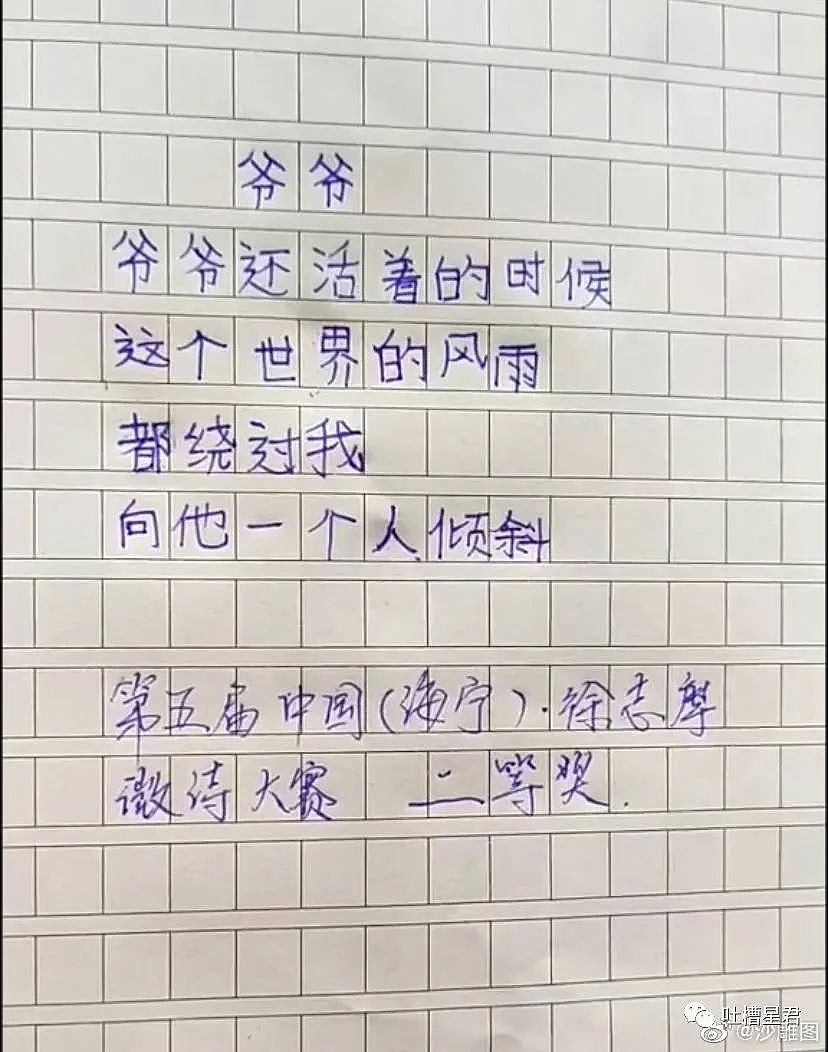 爷爷
爷爷还活着的时候
这个世界的风雨
都绕过我
向他一个人倾斜
第五届中国(海宁)·徐志摩
微诗大赛 二等奖.
吐槽星君
@沙雕图